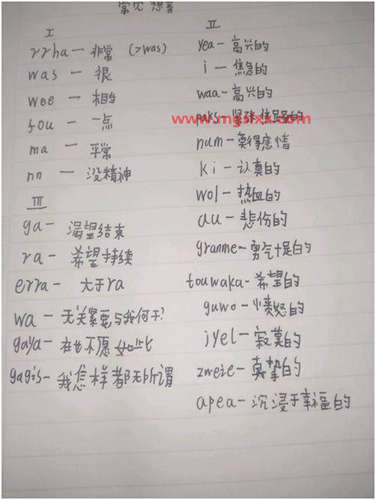 常见想音
I
rrha — 非常 (>was)
was — 很
wee — 相当
fou — 一点
ma — 平常
nn — 没精神
III
ga — 渴望结束
ra — 希望持续
erra — 大于ra
wa — 无关紧要与我何干?
gaya — 在也不愿如此
gagis — 我怎样都无所谓
II
yea — 高兴的
i — 焦急的
waa — 高兴的
num — 莫得感情
ki — 认真的
wol — 热血的
au — 悲伤的
granme — 勇气十足的
touwaka — 希望的
guwo — 愤怒的
jyel — 寂寞的
zweie — 真挚的
apea — 沉浸于幸福的